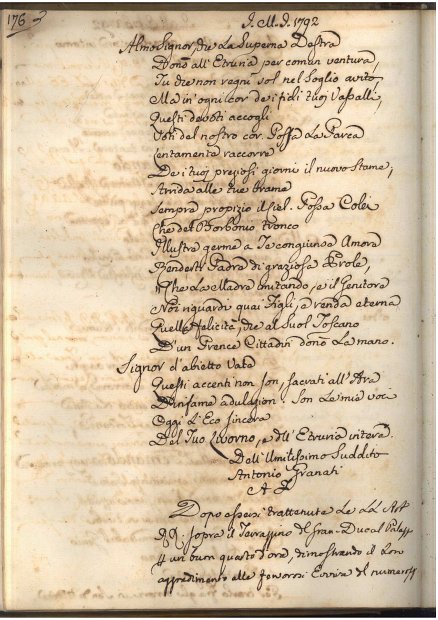 176
J. M. J. 1792
Almo Signor, che La Superna Destra
Donò all'Etruria per comun ventura,
Tu che non regni sol nel Soglio avito
Ma in ogni cor de i fidi tuoj Vassalli,
Questi devoti accogli
Voti del nostro cor. Possa La Parca
Lentamente raccorre
De i tuoj preziosi giorni il nuovo Stame,
Arrida alle tue brame
Sempre propizio il Ciel. Possa Colei
Che del Borbonio tronco
Illustre germe a Te congiunse Amore
Renderti Padre di graziosa Prole,
Che La Madre imitando, e il Genitore
Noi riguardi quai Figli, e renda eterna
Quella Felicità, che al Suol Toscano
D'un Prence Cittadin donò La mano.
Signor d'abietto Vate
Questi accenti non son, sacrati all'Ara
D'infame adulazion. Son Le mie voci
Oggi L'Eco sincera
Del Tuo Livorno, e dell'Etruria intera.
Dell'Umilissimo Suddito
Antonio Granati
Dopo essersi trattenute Le LL. AA.
RR. sopra il Terrazzino del Gran-Ducal Palazz
un buon quarto d'ora, dimostrando il Loro
aggradimento alle fervorosi Evviva del numeros